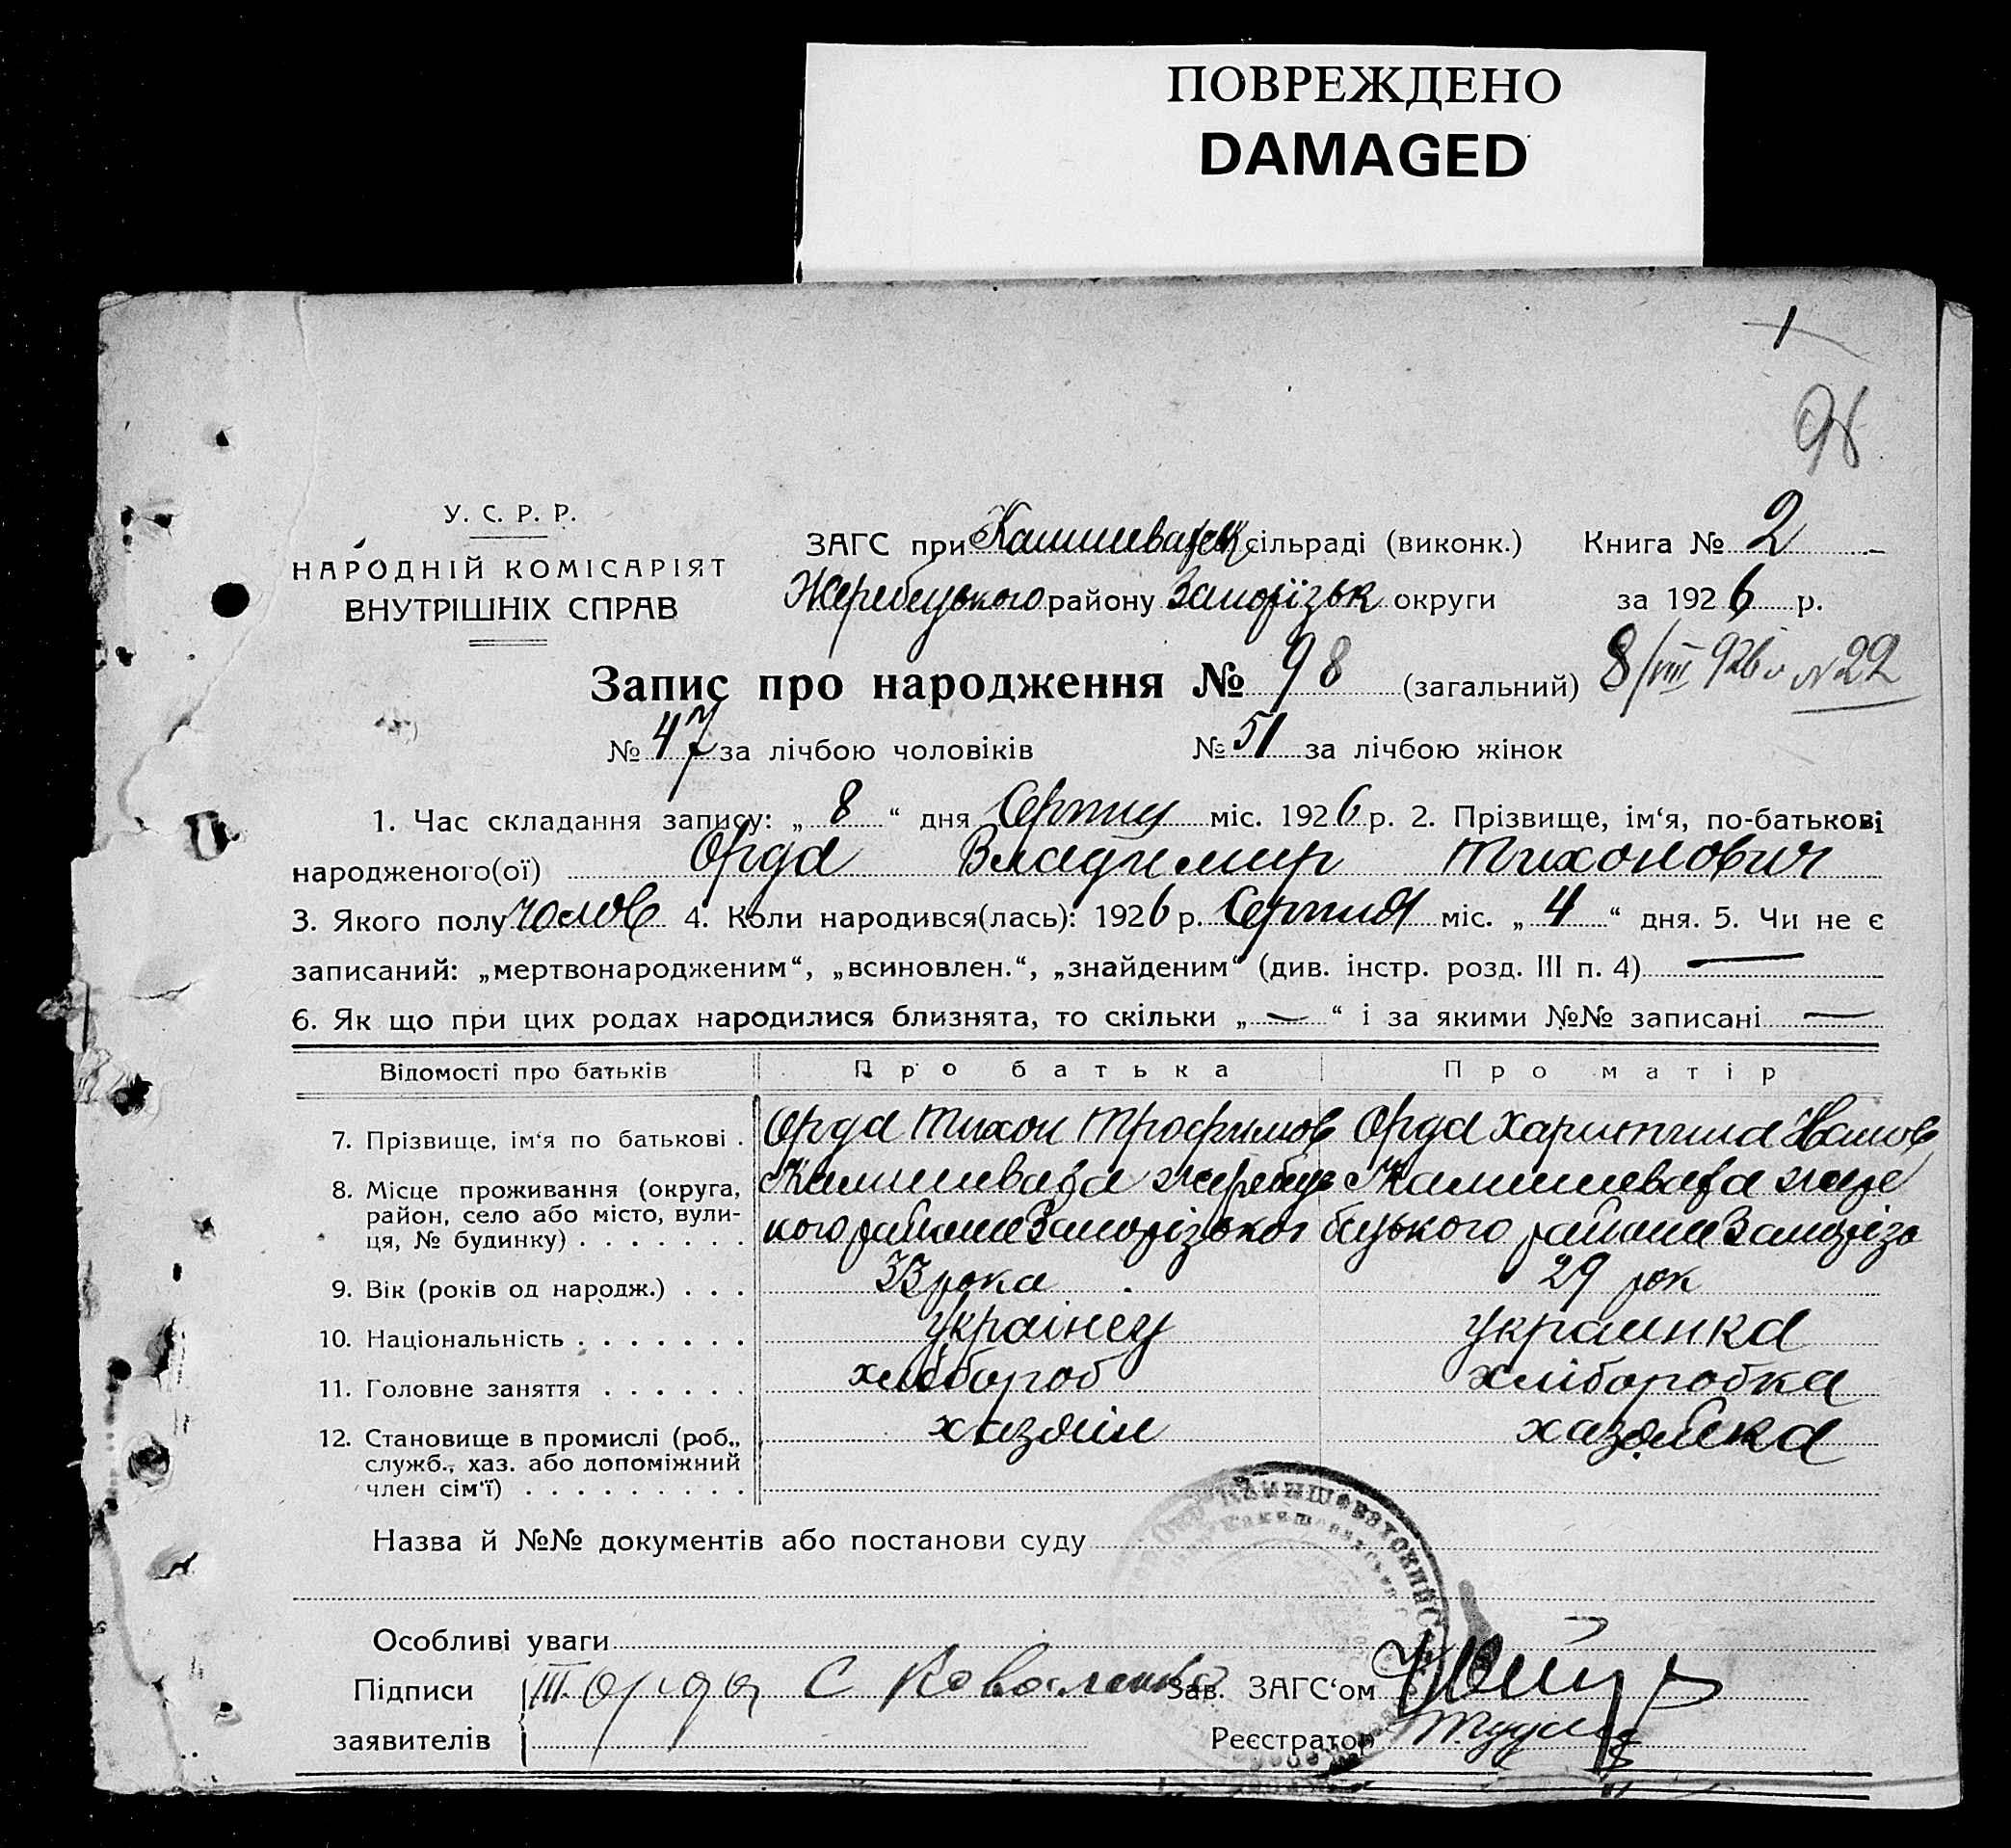 ПОВРЕЖДЕНО
DAMAGED
1
98
У. С. Р. Р.
НАРОДНІЙ КОМІСАРІЯТ
ВНУТРІШНІХ СПРАВ
ЗАГС при Камишеватск сільраді (виконк.) Книга № 2
Жеребецького району Запоріzьк округи за 1926 р.
Запис про народження № 98 (загальний) 8/VIII 926 N 22
№ 47 за лічбою чоловіків № 51 за лічбою жінок
1. Час складання запису: „ 8 “ дня Серпня міс. 1926 р. 2. Прізвище, ім‘я, по-батькові
народженого(ої) Орда Владимир Тихонович
3. Якого полу чолов 4. Коли народився(лась): 1926 р. Серпня міс. „ 4 “ дня. 5. Чи не є
записаний: „мертвонародженим“, „всиновлен.“, „знайденим“ (див. інстр. розд. III п. 4) —
6. Як що при цих родах народилися близнята, то скільки „ — “ і за якими №№ записані —
Відомості про батьків Про батька Про матір
7. Прізвище, ім‘я по батькові . Орда Тихон Трофимов Орда Харитина Иванов
8. Місце проживання (округа, Камишевата жеребець Камишевата жере
район, село або місто, вули- кого района Запорізькоі бецького района Запорізь
ця, № будинку) . . . . . . .
9. Вік (років од народж.) . . . 33 рока 29 рок
10. Національність . . . . . . . українец украинка
11. Головне заняття . . . . . . хлібороб хліборобка
12. Становище в промислі (роб., хазяін хазяйка
служб., хаз. або допоміжний
член сім‘ї) . . . . . . . . . .
Назва й №№ документів або постанови суду
Особливі уваги
Підписи Орда С Коваленко Зав. ЗАГС‘ом
заявителів Реєстратор